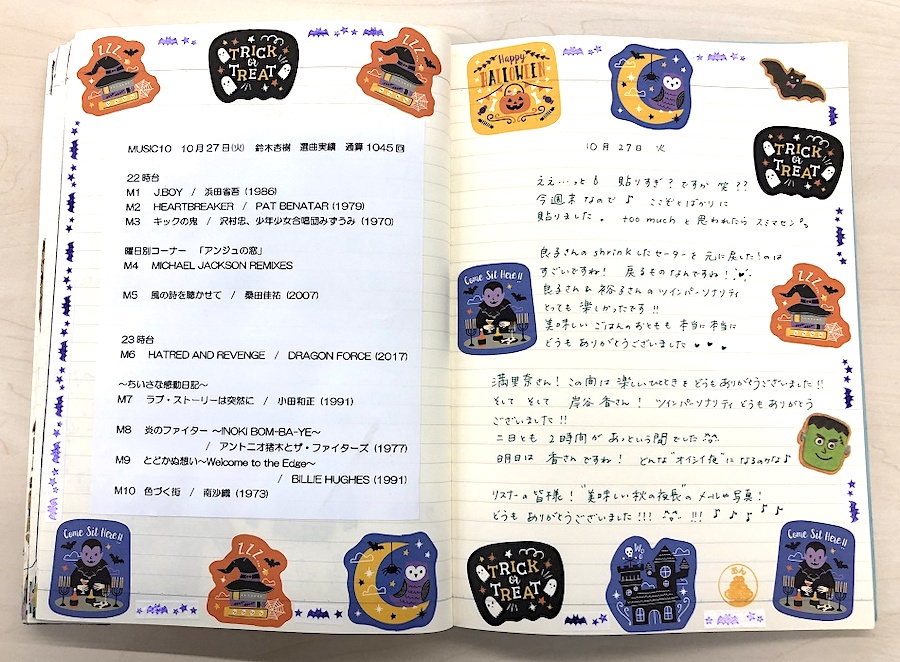 ZZZ
TRICK
or
TREAT
ZZZ
MUSIC10　10月27日(火)　鈴木杏樹　選曲実績　通算1045回
22時台
M1　J.BOY　/　浜田省吾（1986）
M2　HEARTBREAKER　/　PAT BENATAR（1979）
M3　キックの鬼　/　沢村忠、少年少女合唱団みずうみ（1970）
曜日別コーナー　「アンジュの窓」
M4　MICHAEL JACKSON REMIXES
M5　風の詩を聴かせて　/　桑田佳祐（2007）
23時台
M6　HATRED AND REVENGE　/　DRAGON FORCE（2017）
～ちいさな感動日記～
M7　ラブ・ストーリーは突然に　/　小田和正（1991）
M8　炎のファイター ～INOKI BOM-BA-YE～
/　アントニオ猪木とザ・ファイターズ（1977）
M9　とどかぬ想い～Welcome to the Edge～
/　BILLIE HUGHES（1991）
M10　色づく街　/　南沙織（1973）
Come Sit Here!!
ZZZ
Happy
HALLOWEEN
TRICK
or
TREAT
10月27日　火
ええ…っと　貼りすぎ？ですか 笑？？
今週末なので♪　ここぞとばかりに
貼りました。　too muchと思われたら スミマセン
良子さんのshrinkしたセーターを元に戻した！のは
すごいですね！　戻るものなんですね！
良子さん & 裕子さんのツインパーソナリティ
とっても楽しかったです!!
美味しいごはんのおともも 本当に本当に
どうも ありがとうございました♥♥♥
Come Sit Here!!
ZZZ
満里奈さん！この間は楽しいひとときをどうもありがとうございました!!
そして そして　岸谷香さん！ツインパーソナリティどうもありがとう
ございました!!
二日とも　2時間があっという間でした
明日は 香さんですね！　どんな"オイシイ夜"になるのかな♪
リスナーの皆様！"美味しい秋の夜長"のメールや写真！
どうも ありがとうございました!!! !! ♪♪♪♪♪
TRICK
or
TREAT
あん
Come Sit Here!!